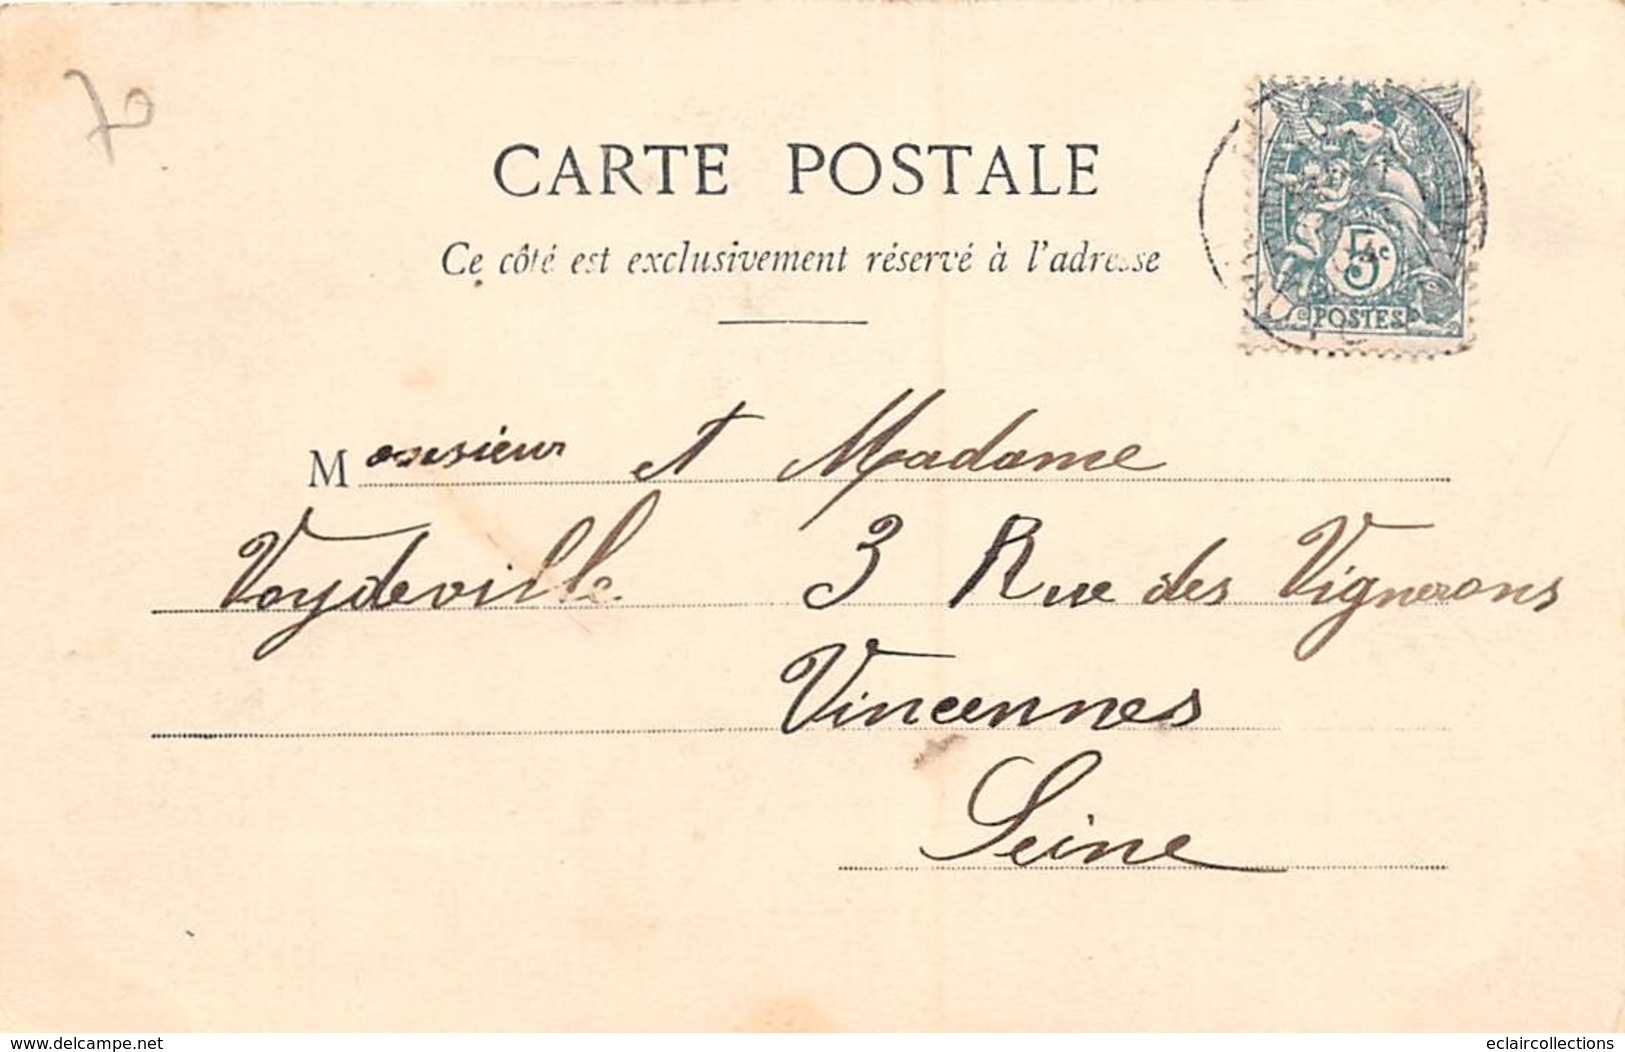 70
CARTE POSTALE
Ce côté est exclusivement réservé à l'adresse
5c
POSTES
Monsieur et Madame
Voydeville 3 Rue des Vignerons
Vincennes
Seine
www.delcampe.net
eclaircollections